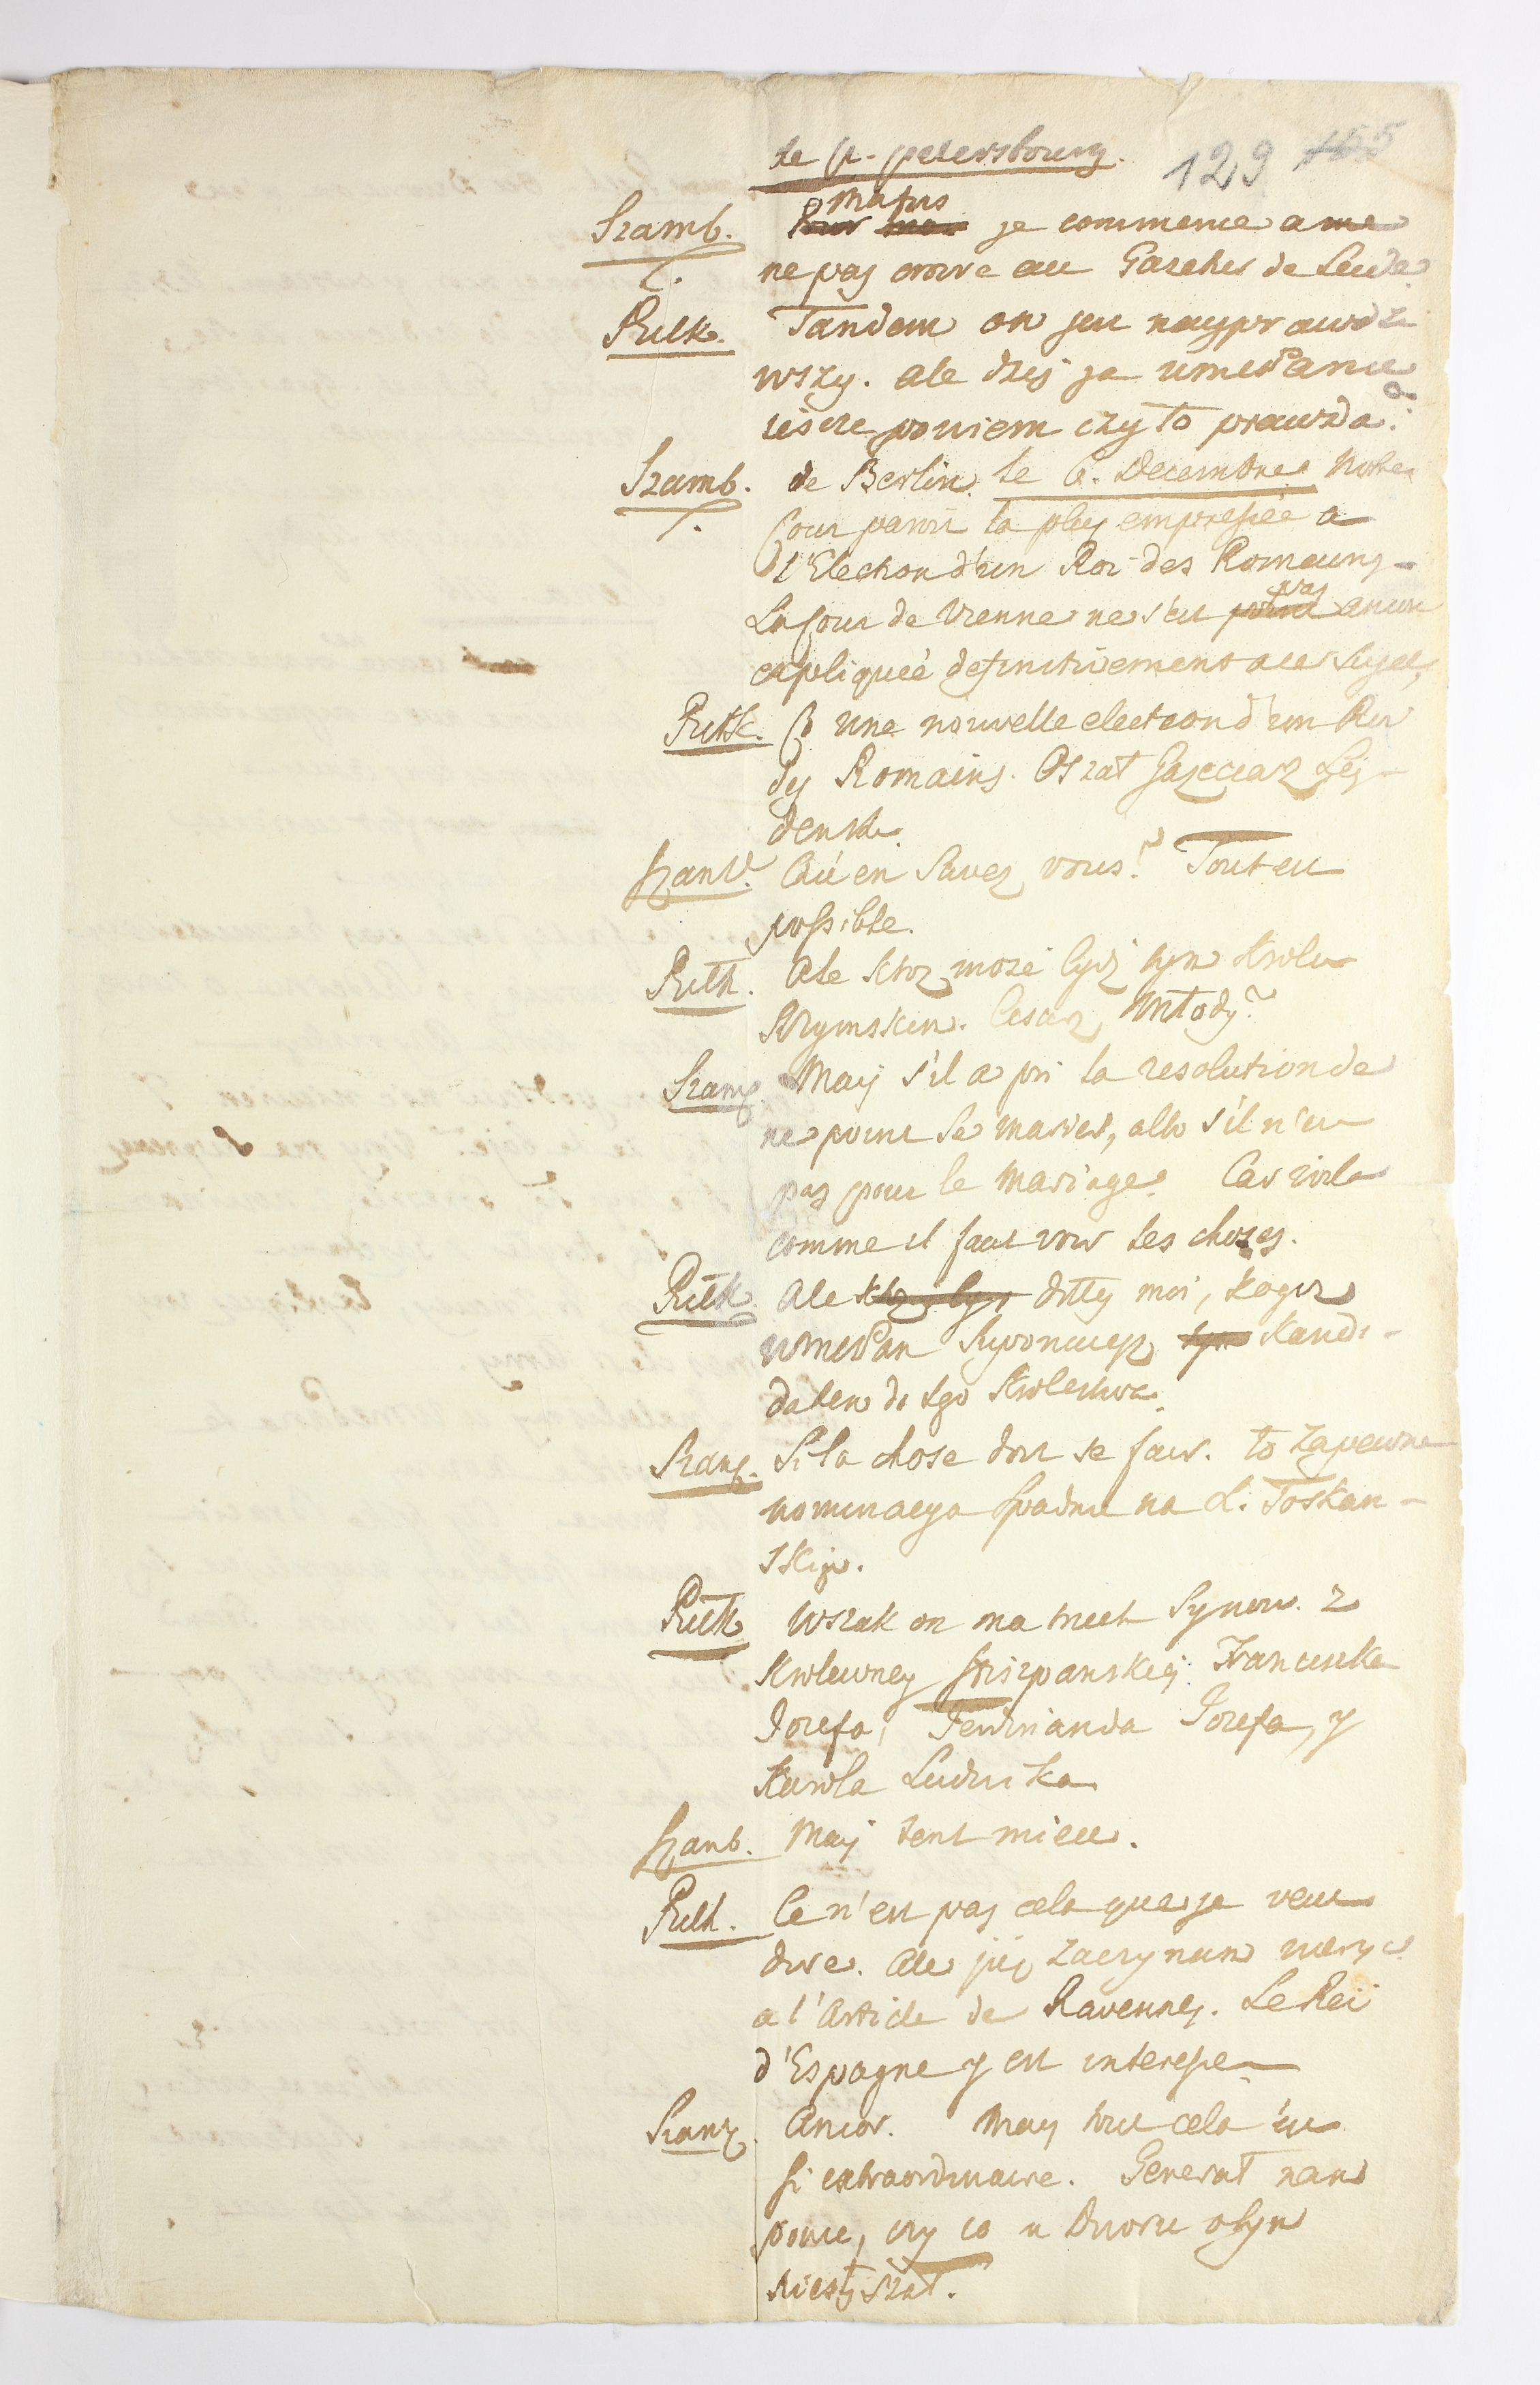 de p. petersbourg.
129 155
Szamb. Pour moi Ma foi je commence a me
ne pas croire au Gazettes de Leide.
Pulk. Tandem on jest nayprawdzi
wszy. ale dziś ja WMćPanie
ieszcze powiem czy to prawda?
Szamb. de Berlin. le 6. Decembre Notre
Cour paroit la plus empressée a
l'Election d'un Roi des Romains -
La Cour de Vienne ne s'est point pas ancore
expliqueé definitivement a ce sujet,
Pułk. a une nouvelle election d'un Roi
des Romains. Oszalał Gazeciarz Lej-
denski.
Szamb. Qu'en savez vous? Tout est
possible.
Pułk. Ale ktoz może bydź tym Krolem
Rzymskim. Cesarz Młody?
Szamb. Mais s'il a pri la resolution de
ne point se marier, albo s'il n'est
pas pour le mariage. Car voila
comme il faut voir les choses.
Pułk. Ale ktoz był dittes moi, kogoz
WMćPan supponuiesz tym Kandi-
datem do tego Krolestwa.
Szamb. Si la chose doit se fair. to zapewne
nominacya spadnie na L. Toskan-
skiego.
Pułk. Wszak on ma trzech Synow. z
Krolewney Hiszpanskiej. Franciszka
Jozefa, Ferdinanda Jozefa, y
Karola Ludwika
Szamb. Mais tent mieu.
Pułk. Ce n'est pas cela que je veux
dire. Ale już zaczynam wierzyć
a l'Article de Ravennes. Le Roi
d'Espagne y est interesse
Szamb. Ancor. Mais tout cela est
si extraordinaire. Generał nam
powie, czy co u Dworu o tym
nie słyszał.